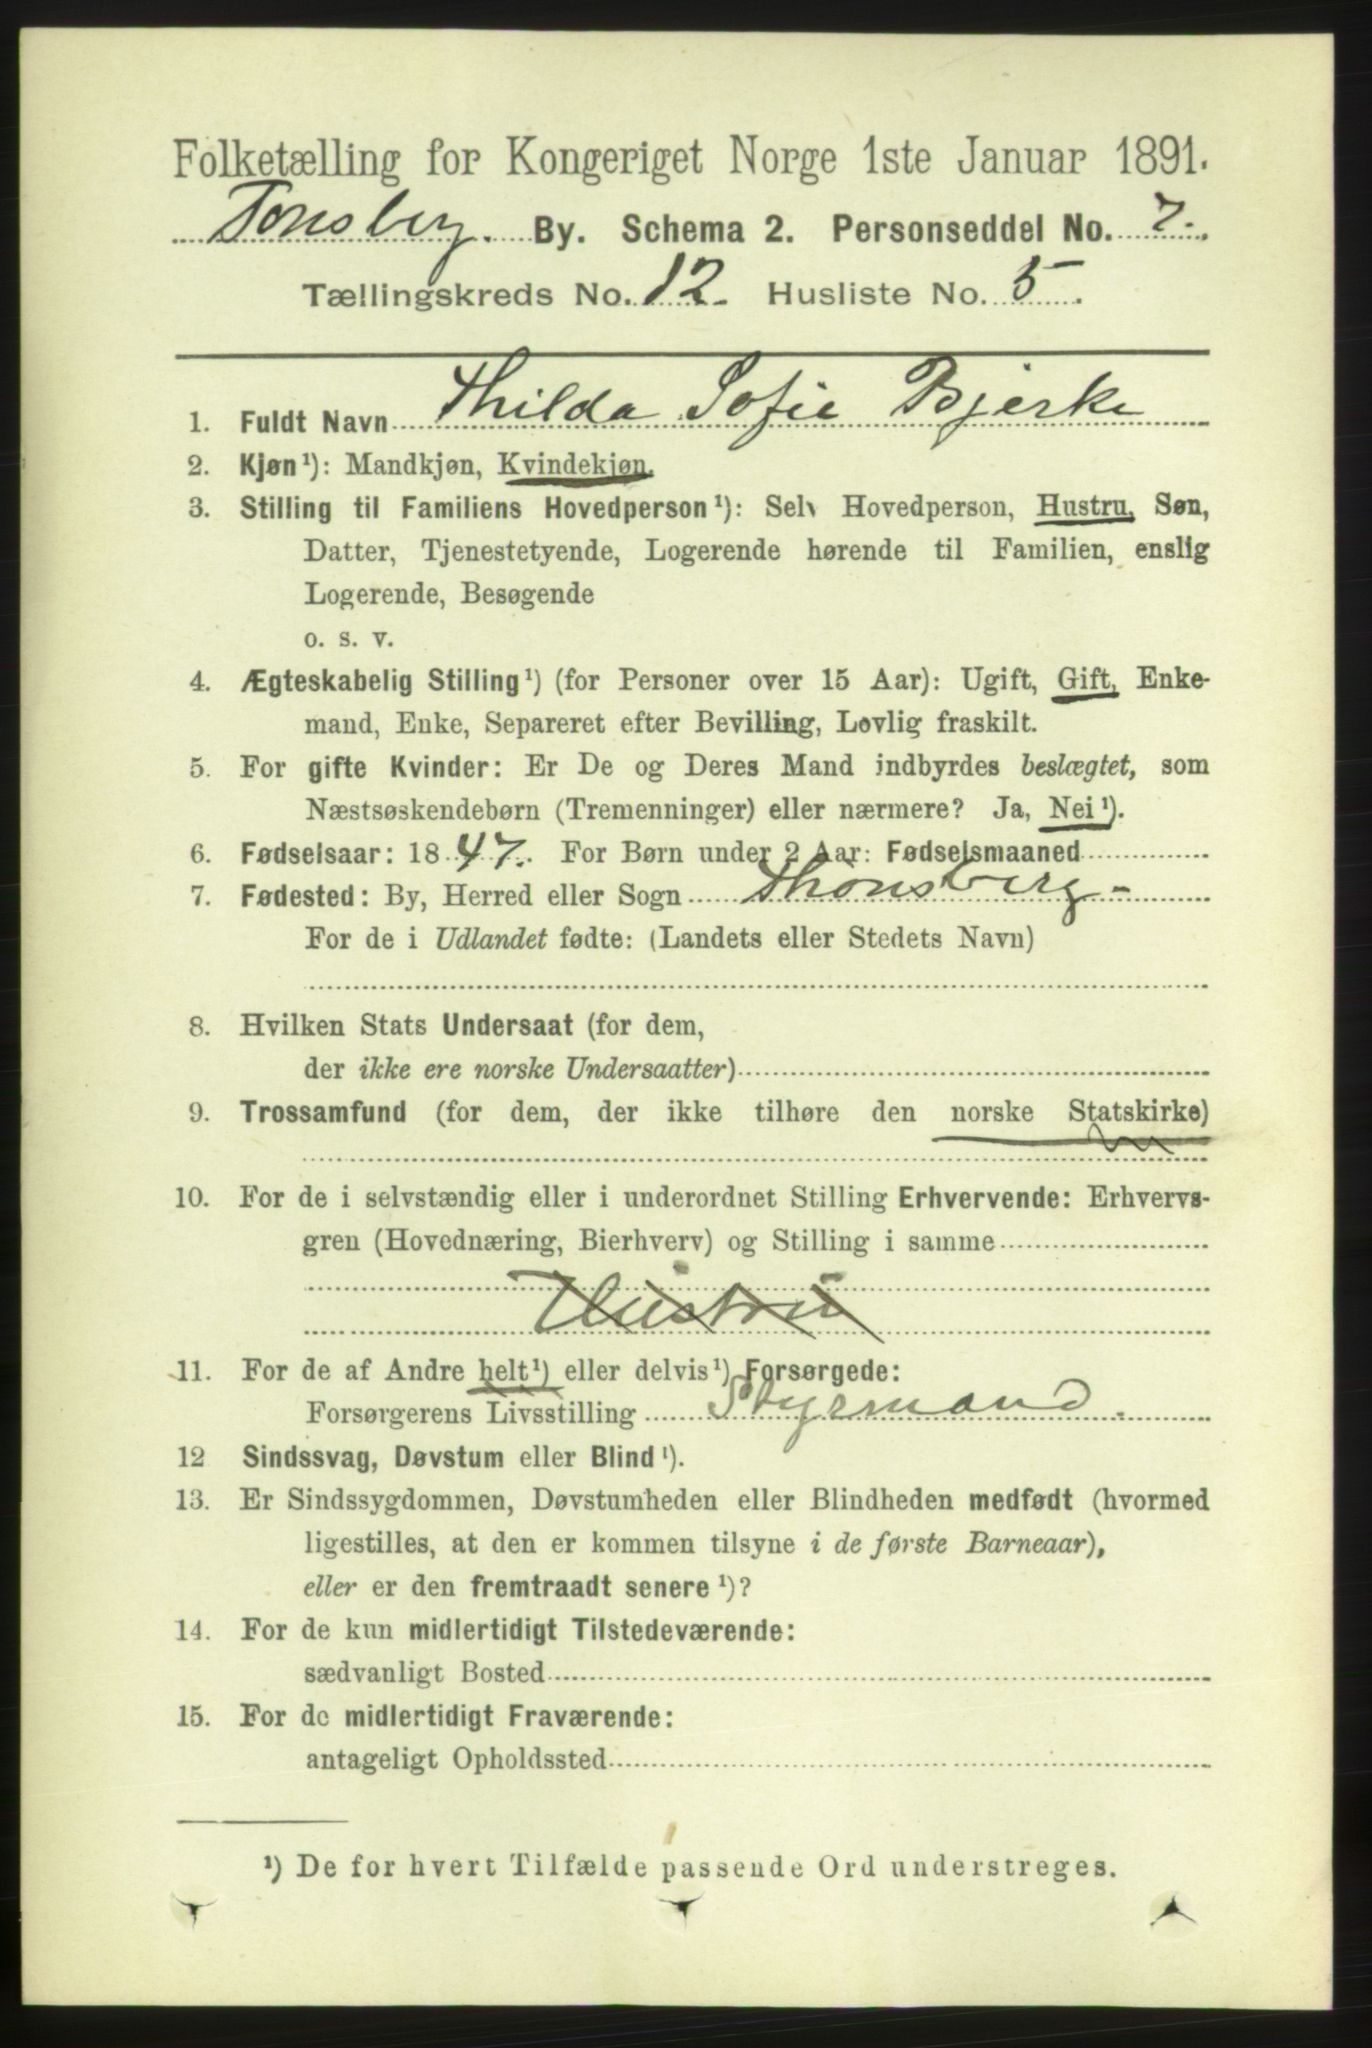 Folketælling for Kongeriget Norge 1ste Januar 1891.
Tønsberg. By. Schema 2. Personseddel No. 7.
Tællingskreds No. 12. Husliste No. 5.
1. Fuldt Navn Thilda Sofie Bjerke
2. Kjøn¹): Mandkjøn, Kvindekjøn.
3. Stilling til Familiens Hovedperson¹): Selv Hovedperson, Hustru, Søn,
Datter, Tjenestetyende, Logerende hørende til Familien, enslig
Logerende, Besøgende
o. s. v.
4. Ægteskabelig Stilling¹) (for Personer over 15 Aar): Ugift, Gift, Enke-
mand, Enke, Separeret efter Bevilling, Lovlig fraskilt.
5. For gifte Kvinder: Er De og Deres Mand indbyrdes beslægtet, som
Næstsøskendebørn (Tremenninger) eller nærmere? Ja, Nei¹).
6. Fødselsaar: 1847. For Børn under 2 Aar: Fødselsmaaned
7. Fødested: By, Herred eller Sogn Thønsberg -
For de i Udlandet fødte: (Landets eller Stedets Navn)
8. Hvilken Stats Undersaat (for dem,
der ikke ere norske Undersaatter)
9. Trossamfund (for dem, der ikke tilhøre den norske Statskirke)
10. For de i selvstændig eller i underordnet Stilling Erhvervende: Erhvervs-
gren (Hovednæring, Bierhverv) og Stilling i samme
Hustru
11. For de af Andre helt¹) eller delvis¹) Forsørgede:
Forsørgerens Livsstilling Styrmand.
12 Sindssvag, Døvstum eller Blind¹).
13. Er Sindssygdommen, Døvstumheden eller Blindheden medfødt (hvormed
ligestilles, at den er kommen tilsyne i de første Barneaar),
eller er den fremtraadt senere¹)?
14. For de kun midlertidigt Tilstedeværende:
sædvanligt Bosted
15. For de midlertidigt Fraværende:
antageligt Opholdssted
¹) De for hvert Tilfælde passende Ord understreges.